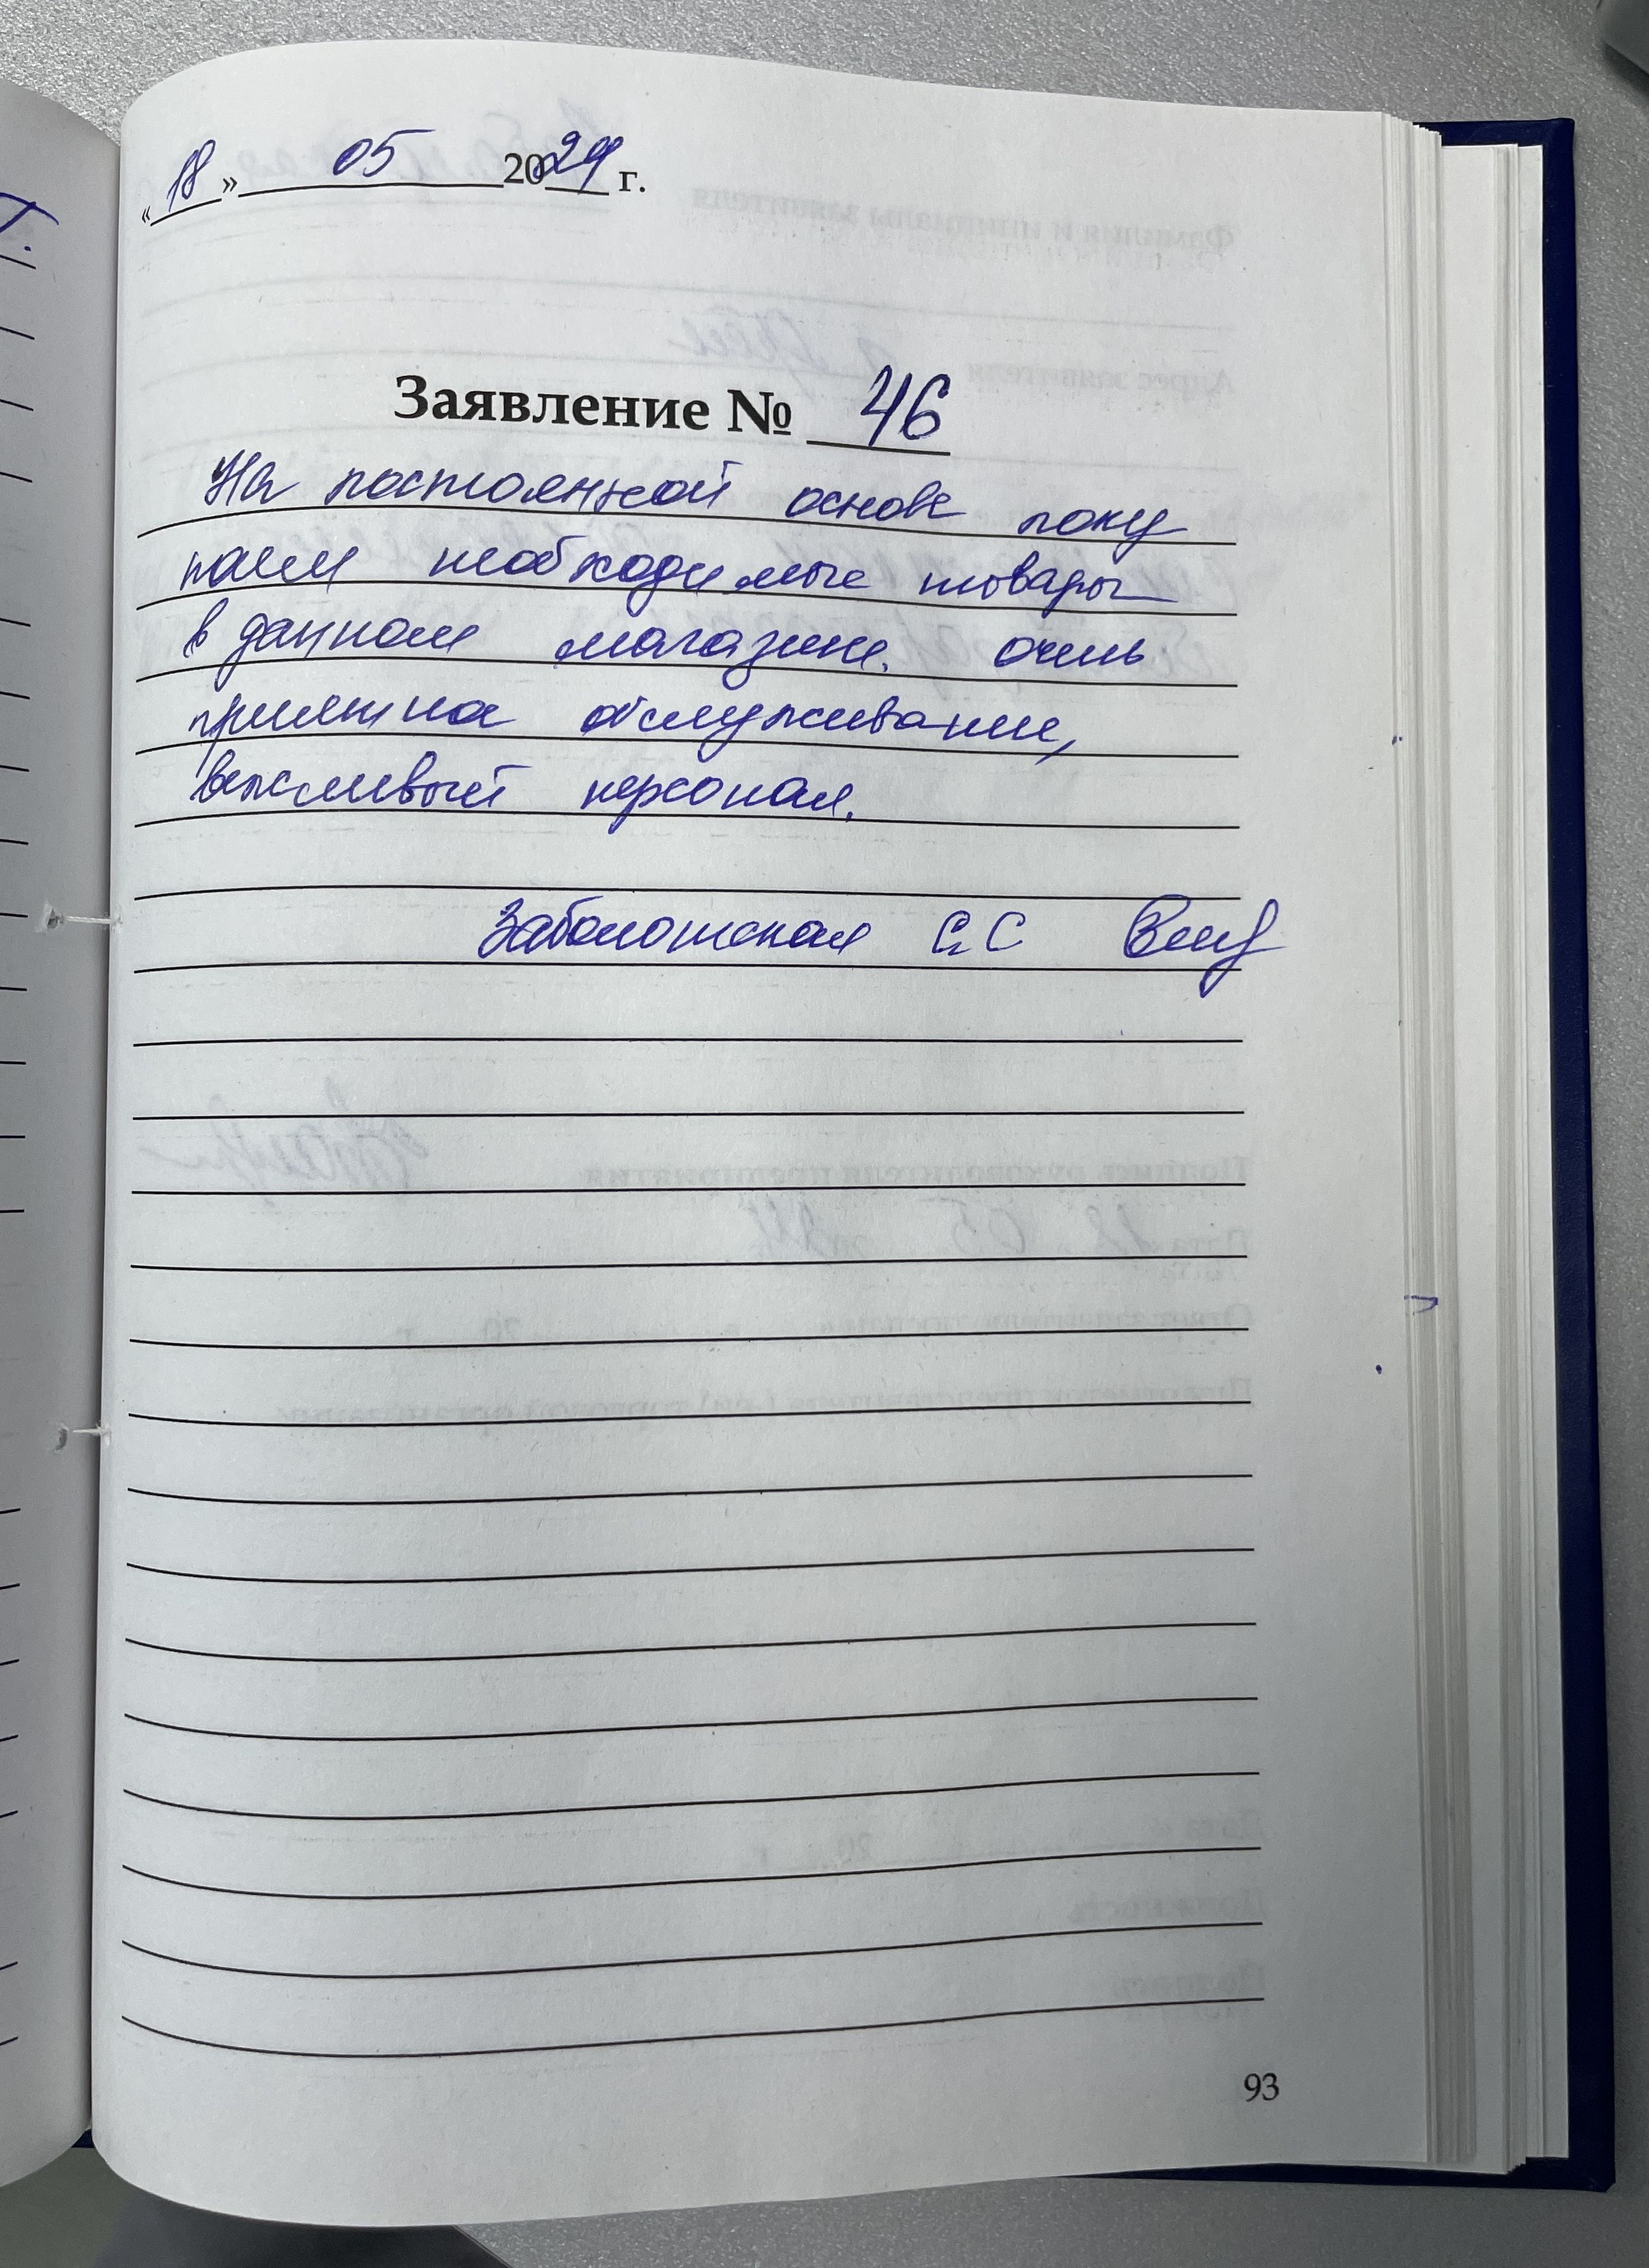 «18» 05 2024 г.
Заявление № 46
На постоянной основе поку
паем необходимые товары
в данном магазине. очень
приятна обслуживание,
вежливый персонал.
Заболотская С. С
93